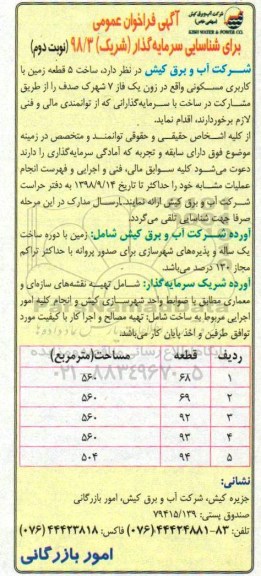 شرکت آب و برق کیش
(سهامی خاص)
KISH WATER & POWER CO.
آگهی فراخوان عمومی
برای شناسایی سرمایه‌گذار (شریک) ۹۸/۳ (نوبت دوم)
شرکت آب و برق کیش در نظر دارد، ساخت ۵ قطعه زمین با
کاربری مسکونی واقع در زون یک فاز ۷ شهرک صدف را از طریق
مشارکت در ساخت با سرمایه‌گذارانی که از توانمندی مالی و فنی
لازم برخوردارند، اقدام نماید.
از کلیه اشخاص حقیقی و حقوقی توانمند و متخصص در زمینه
موضوع فوق دارای سابقه و تجربه که آمادگی سرمایه‌گذاری را دارند
دعوت می‌شود کلیه سوابق مالی، فنی و اجرایی و فهرست انجام
عملیات مشابه خود را حداکثر تا تاریخ ۱۳۹۸/۹/۱۴ به دفتر حراست
شرکت آب و برق کیش ارائه نمایند.ارسال مدارک در این مرحله
صرفا جهت شناسایی تلقی می‌گردد.
آورده شرکت آب و برق کیش شامل: زمین با دوره ساخت
یک ساله و پذیره‌های شهرسازی برای صدور پروانه با حداکثر تراکم
مجاز ۱۳۰ درصد می‌باشد.
آورده شریک سرمایه‌گذار: شامل تهیه نقشه‌های سازه‌ای و
معماری مطابق با ضوابط واحد شهرسازی کیش و انجام کلیه امور
اجرایی مربوط به ساخت شامل: تهیه مصالح و اجرا کار با کیفیت مورد
توافق طرفین و اخذ پایان کار می‌باشد.
ردیف قطعه مساحت(مترمربع)
۱ ۶۸ ۵۶۰
۲ ۶۹ ۵۶۰
۳ ۹۲ ۵۶۰
۴ ۹۳ ۵۶۰
۵ ۹۴ ۵۰۴
۰۲۱-۸۸۳۴۹۶۷۰-۵
نشانی:
جزیره کیش، شرکت آب و برق کیش، امور بازرگانی
صندوق پستی: ۷۹۴۱۵/۱۳۹
تلفن: ۸۳-۴۴۴۲۴۸۸۱(۰۷۶) فاکس: ۴۴۴۲۳۸۱۸ (۰۷۶)
امور بازرگانی